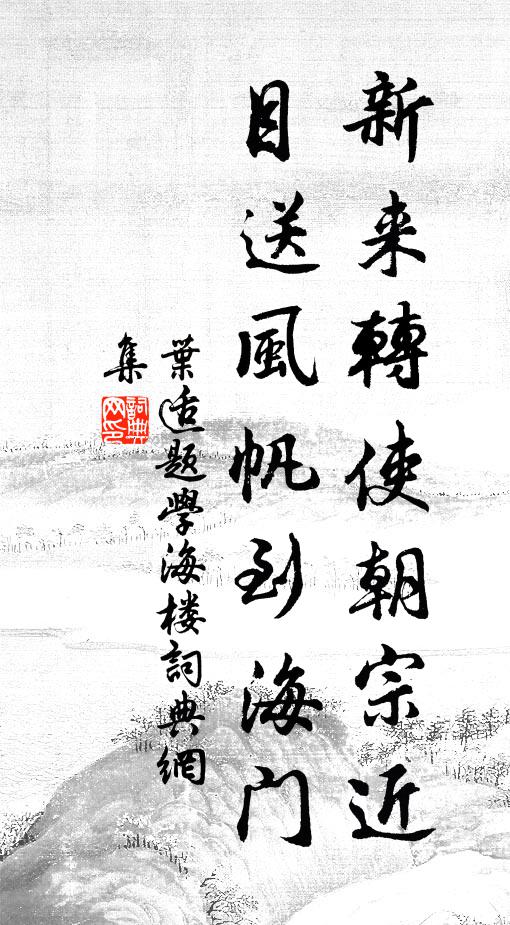 新来轉使朝宗近
目送風帆到海门
葉适題學海楼詞典網
集
詞典网印